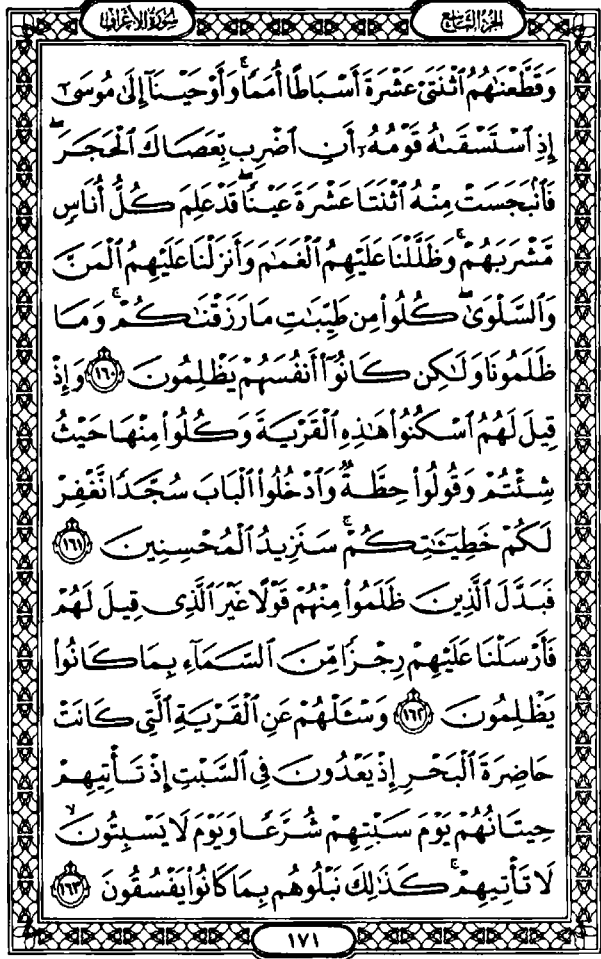 سُورَةُ الأَعْرَافِ
الجُزْءُ التَّاسِعُ
وَقَطَّعْنَٰهُمُ ٱثْنَتَىْ عَشْرَةَ أَسْبَاطًا أُمَمًا ۚ وَأَوْحَيْنَآ إِلَىٰ مُوسَىٰٓ
إِذِ ٱسْتَسْقَىٰهُ قَوْمُهُۥٓ أَنِ ٱضْرِب بِّعَصَاكَ ٱلْحَجَرَ ۖ
فَٱنۢبَجَسَتْ مِنْهُ ٱثْنَتَا عَشْرَةَ عَيْنًا ۖ قَدْ عَلِمَ كُلُّ أُنَاسٍ
مَّشْرَبَهُمْ ۚ وَظَلَّلْنَا عَلَيْهِمُ ٱلْغَمَٰمَ وَأَنزَلْنَا عَلَيْهِمُ ٱلْمَنَّ
وَٱلسَّلْوَىٰ ۖ كُلُوا۟ مِن طَيِّبَٰتِ مَا رَزَقْنَٰكُمْ ۚ وَمَا
ظَلَمُونَا وَلَٰكِن كَانُوٓا۟ أَنفُسَهُمْ يَظْلِمُونَ ١٦٠ وَإِذْ
قِيلَ لَهُمُ ٱسْكُنُوا۟ هَٰذِهِ ٱلْقَرْيَةَ وَكُلُوا۟ مِنْهَا حَيْثُ
شِئْتُمْ وَقُولُوا۟ حِطَّةٌ وَٱدْخُلُوا۟ ٱلْبَابَ سُجَّدًا نَّغْفِرْ
لَكُمْ خَطِيٓـَٰٔتِكُمْ ۚ سَنَزِيدُ ٱلْمُحْسِنِينَ ١٦١
فَبَدَّلَ ٱلَّذِينَ ظَلَمُوا۟ مِنْهُمْ قَوْلًا غَيْرَ ٱلَّذِى قِيلَ لَهُمْ
فَأَرْسَلْنَا عَلَيْهِمْ رِجْزًا مِّنَ ٱلسَّمَآءِ بِمَا كَانُوا۟
يَظْلِمُونَ ١٦٢ وَسْـَٔلْهُمْ عَنِ ٱلْقَرْيَةِ ٱلَّتِى كَانَتْ
حَاضِرَةَ ٱلْبَحْرِ إِذْ يَعْدُونَ فِى ٱلسَّبْتِ إِذْ تَأْتِيهِمْ
حِيتَانُهُمْ يَوْمَ سَبْتِهِمْ شُرَّعًا وَيَوْمَ لَا يَسْبِتُونَ ۙ
لَا تَأْتِيهِمْ ۚ كَذَٰلِكَ نَبْلُوهُم بِمَا كَانُوا۟ يَفْسُقُونَ ١٦٣
١٧١